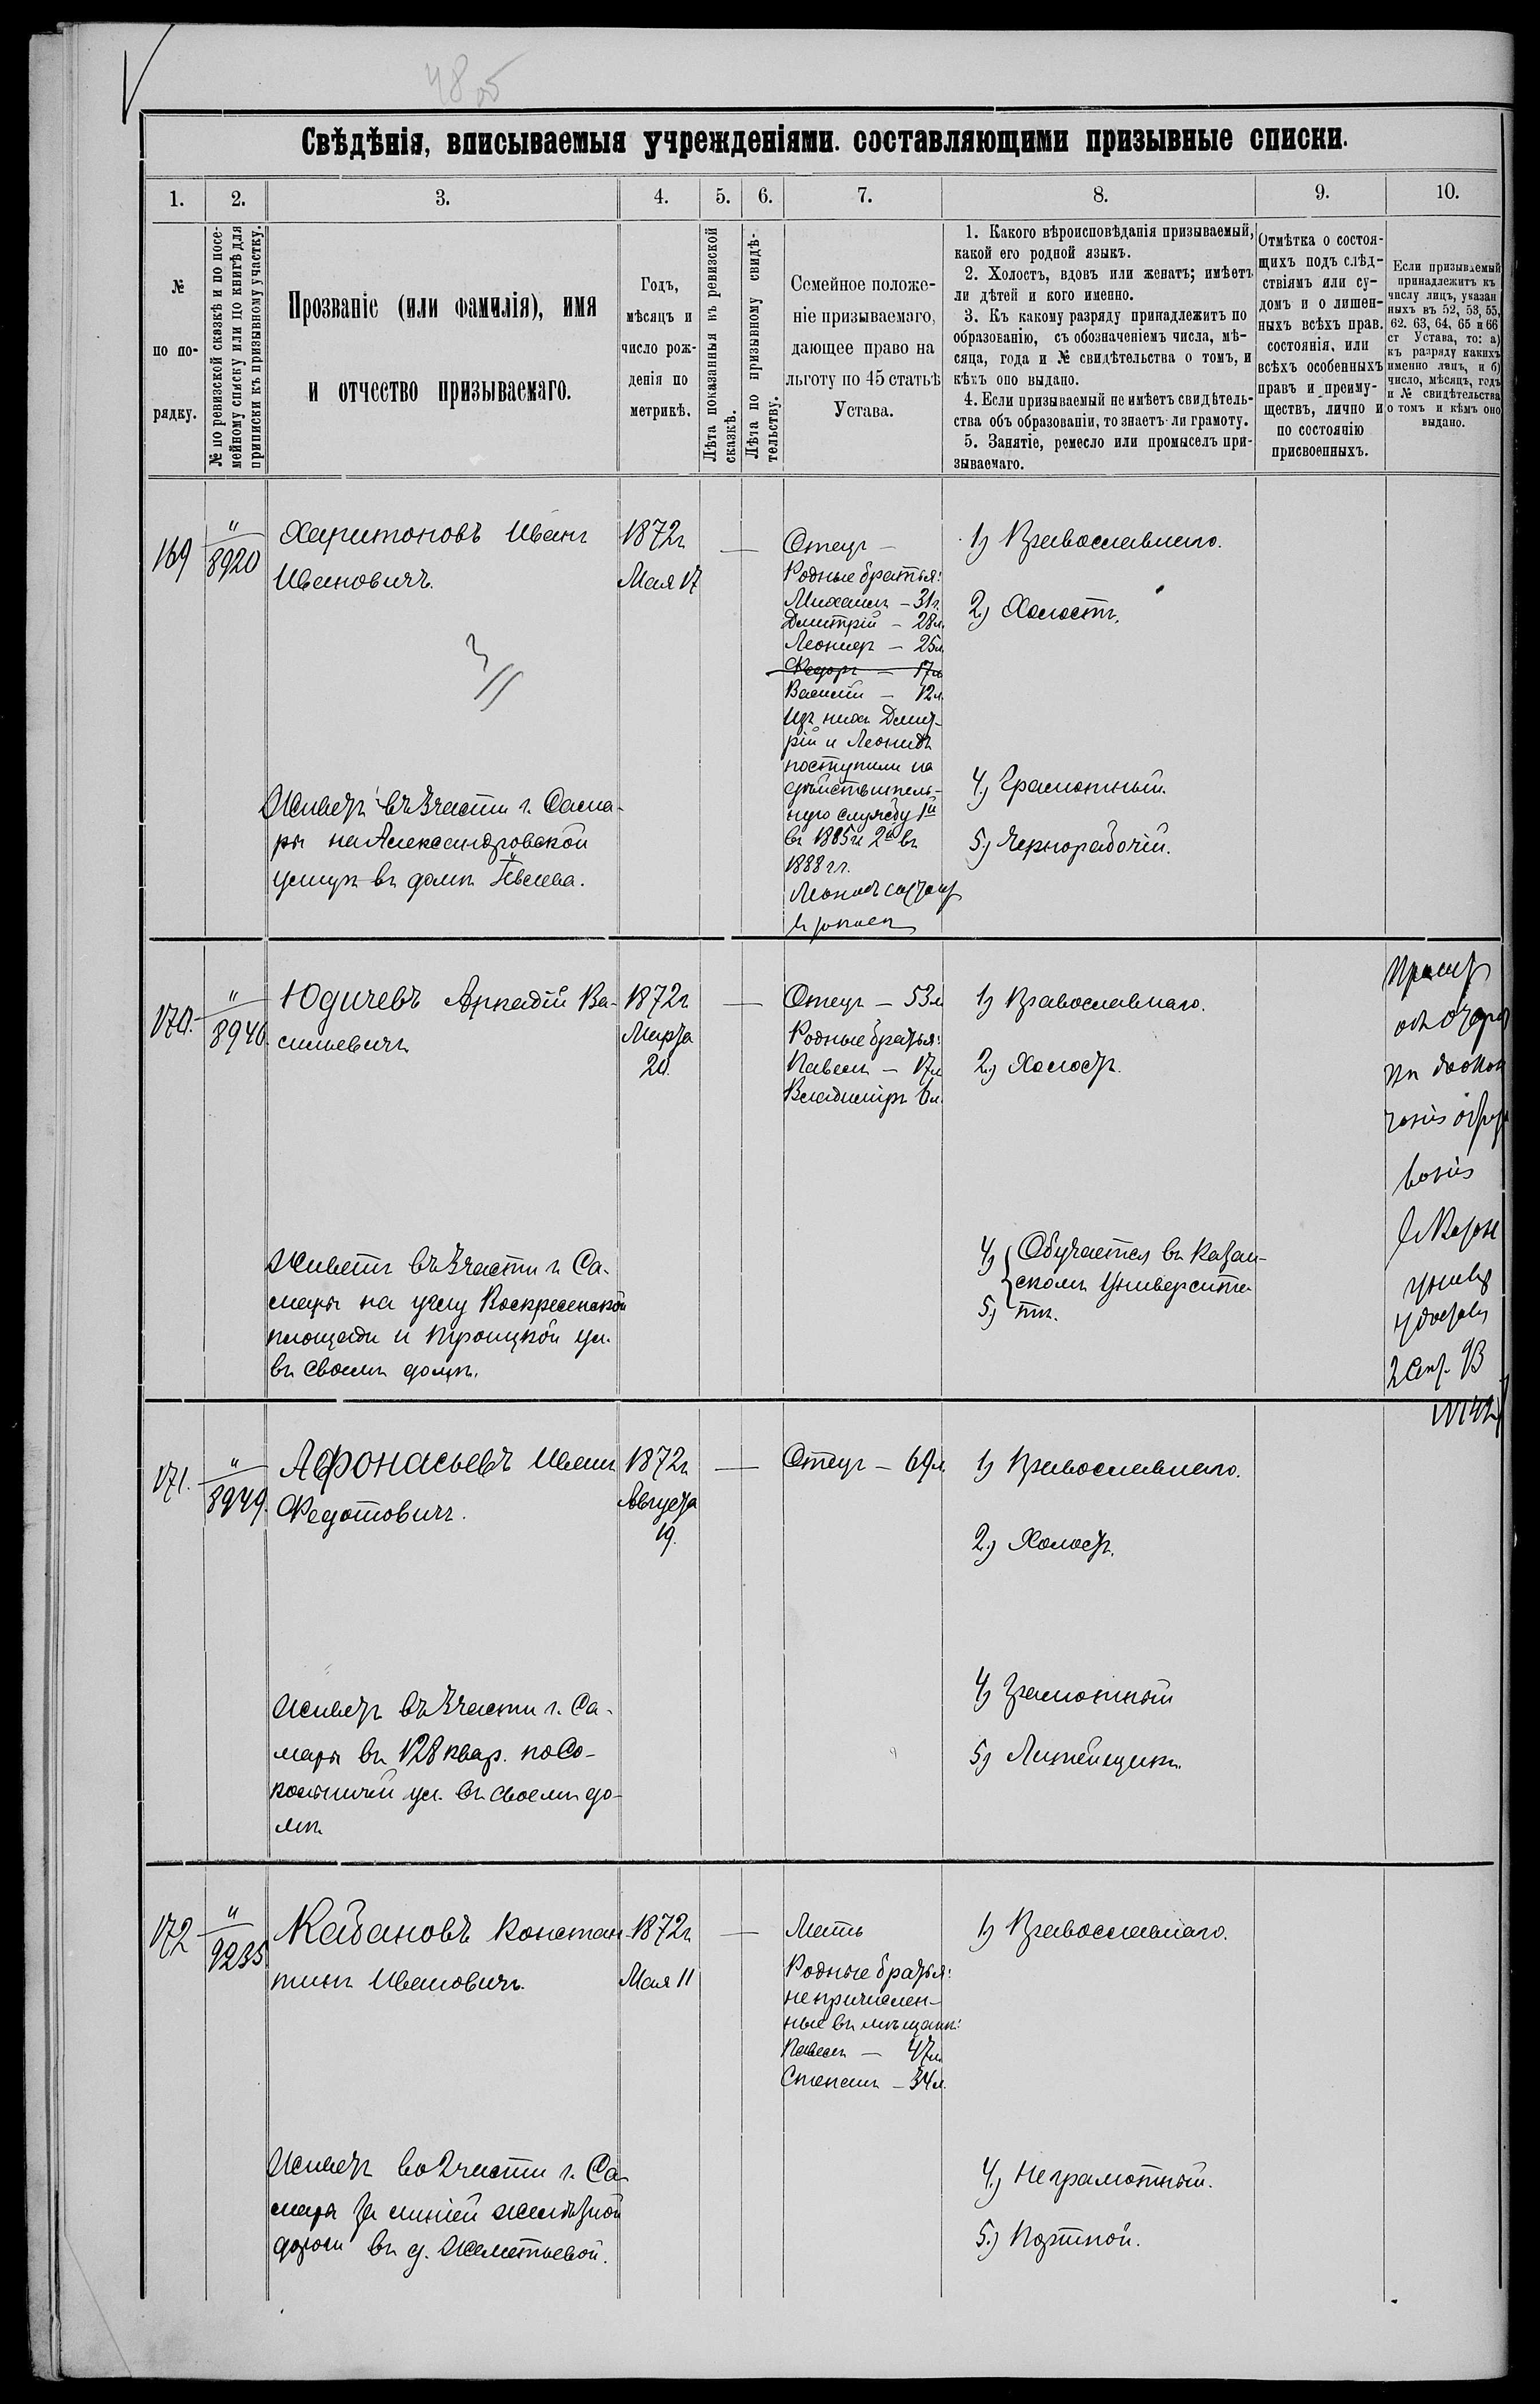 48 об
Свѣдѣнія, вписываемыя учрежденіями. составляющими призывные списки.
1. 2. 3. 4. 5. 6. 7. 8. 9. 10.
№
по по-
рядку.
№ по ревизской сказкѣ и по посе-
мейному списку или по книгѣ для
приписки къ призывному участку.
Прозваніе (или фамилія), имя
и отчество призываемаго.
Годъ,
мѣсяцъ и
число рож-
денія по
метрикѣ.
Лѣта показанныя въ ревизской
сказкѣ.
Лѣта по призывному свидѣ-
тельству.
Семейное положе-
ніе призываемаго,
дающее право на
льготу по 45 статьѣ
Устава.
1. Какого вѣроисповѣданія призываемый,
какой его родной языкъ.
2. Холостъ, вдовъ или женатъ; имѣетъ
ли дѣтей и кого именно.
3. Къ какому разряду принадлежитъ по
образованію, съ обозначеніемъ числа, мѣ-
сяца, года и № свидѣтельства о томъ, и
кѣмъ оно выдано.
4. Если призываемый не имѣетъ свидѣтель-
ства объ образованіи, то знаетъ-ли грамоту.
5. Занятіе, ремесло или промыселъ при-
зываемаго.
Отмѣтка о состоя-
щихъ подъ слѣд-
ствіямъ или су-
домъ и о лишен-
ныхъ всѣхъ прав.
состоянія, или
всѣхъ особенныхъ
правъ и преиму-
ществъ, лично и
по состоянію
присвоенныхъ.
Если призываемый
принадлежитъ къ
числу лицъ, указан
ныхъ въ 52, 53, 55,
62. 63, 64, 65 и 66
ст Устава, то: а)
къ разряду какихъ
именно лицъ, и б)
число, мѣсяцъ, годъ
и № свидѣтельства
о томъ и кѣмъ оно
выдано.
169
"
8920
Харитоновъ Иванъ
Ивановичъ.
Живетъ въ 3 части г. Сама-
ры на Александровской
улицѣ въ домѣ
1872г
Мая 17
—
Отецъ —
Родные братья:
Михаилъ — 31г.
Дмитрій — 28л.
Леонидъ — 25л.
Федоръ — 17л
Василій — 12л.
Изъ нихъ Дмит-
рій и Леонидъ
поступили на
дѣйствитель-
ную службу 1й
въ 1885 и 2й въ
1888 гг.
Леонидъ
1) Православнаго.
2) Холостъ.
4) Грамотный.
5.) Чернорабочій.
170.
"
8946.
Юдичевъ Аркадій Ва-
сильевичъ
Живетъ въ 3 части г. Са-
мары на углу Воскресенской
площади и Троицкой ул.
въ своемъ домѣ.
1872г
Марта
20.
—
Отецъ — 53л
Родные братья:
Павелъ — 17л
Владиміръ 6л.
1) Православнаго.
2) Холостъ.
4) Обучается въ Казан-
скомъ Университе-
5) тѣ.
2 Сент. 93
171.
"
8949.
Афонасьевъ Иванъ
Федотовичъ.
Живетъ въ 3 части г. Са-
мары въ 128 кварт. по Со-
кольничей ул. въ своемъ до-
мѣ
1872г
Августа
19.
—
Отецъ — 69л.
1) Православнаго.
2) Холостъ.
4) Грамотный
5) Литейщикъ.
172
"
9235
Кабановъ Констан-
тинъ Ивановичъ.
Живетъ во 2 части г. Са-
мары за линіей желѣзной
дороги въ д.
1872г
Мая 11
—
Мать
Родные братья:
непричислен-
ные въ мѣщане:
Павелъ — 47л.
Степанъ — 34л.
1) Православнаго.
4.) Неграмотный.
5.) Портной.